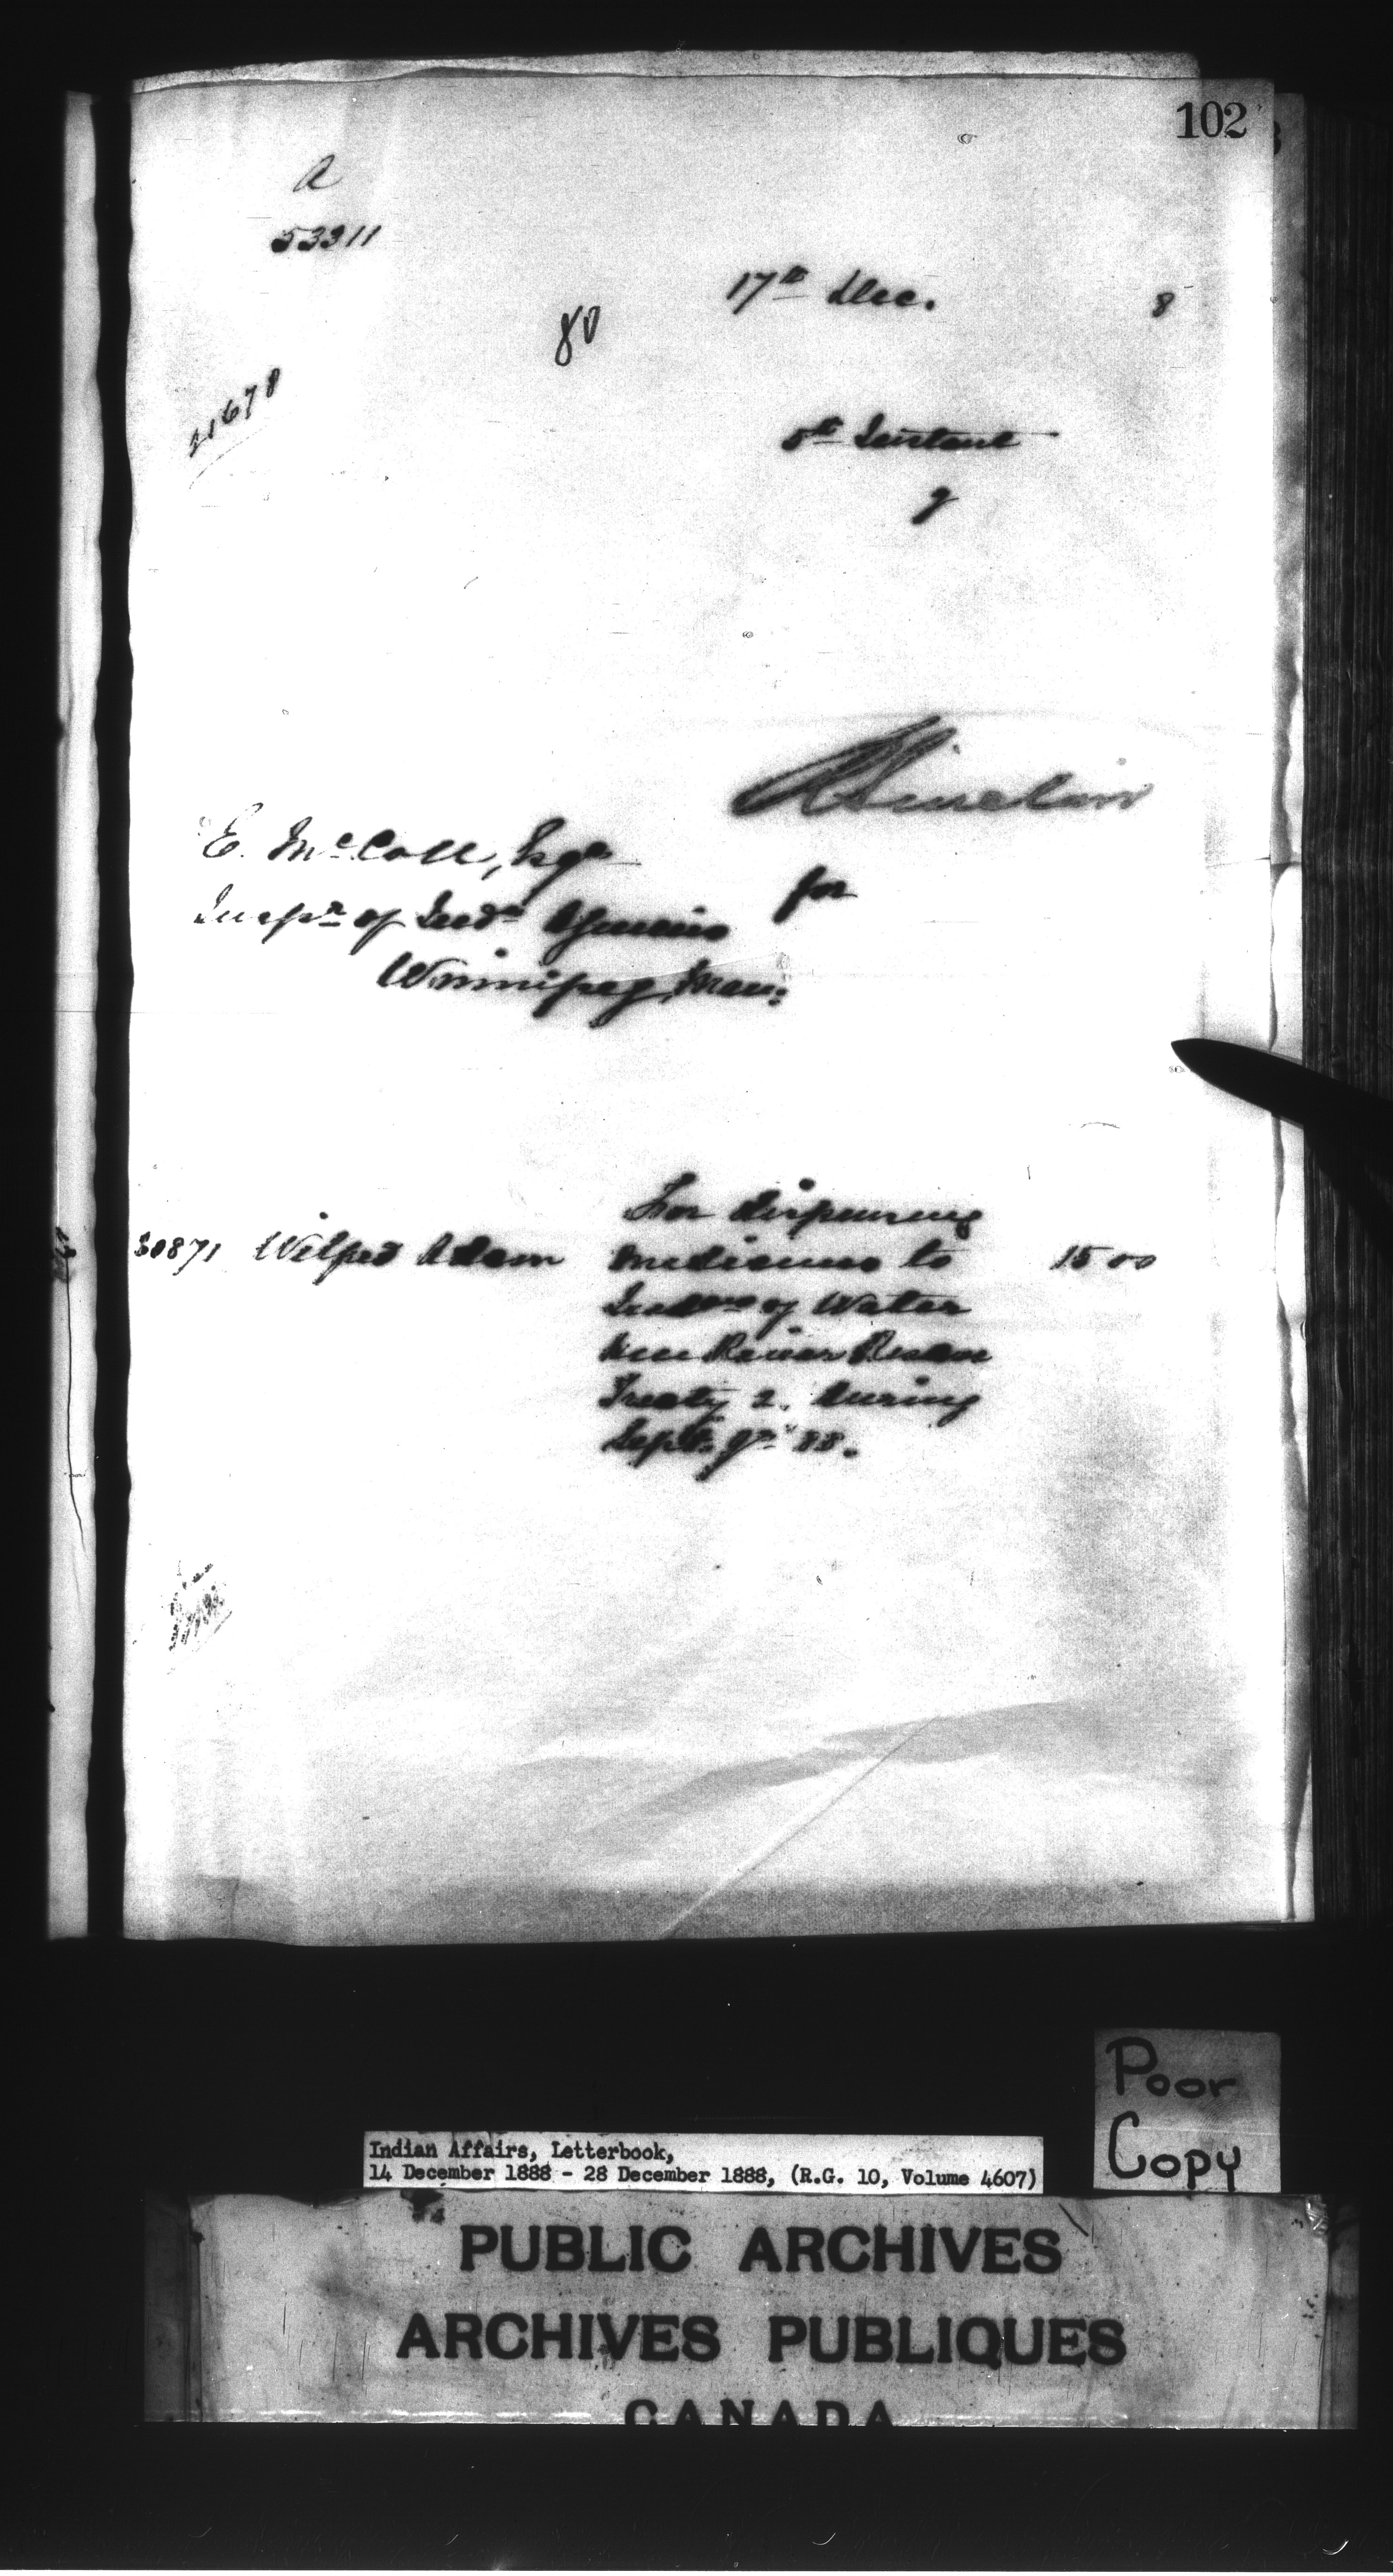 102
A
53311
17th Dec. 8
80
21678
5th Instant
g
R Sinclair
E. McColl, Esqr
for
Inspr of Indn Agencies
Winnipeg, Man:
For dispensing
30871 Wilfred Adam medicines to 15 00
Indians of Water
hen River Reserve
Treaty 2. during
Sept. qr 88.
Poor
Copy
Indian Affairs, Letterbook,
14 December 1888 - 28 December 1888, (R.G. 10, Volume 4607)
PUBLIC ARCHIVES
ARCHIVES PUBLIQUES
CANADA